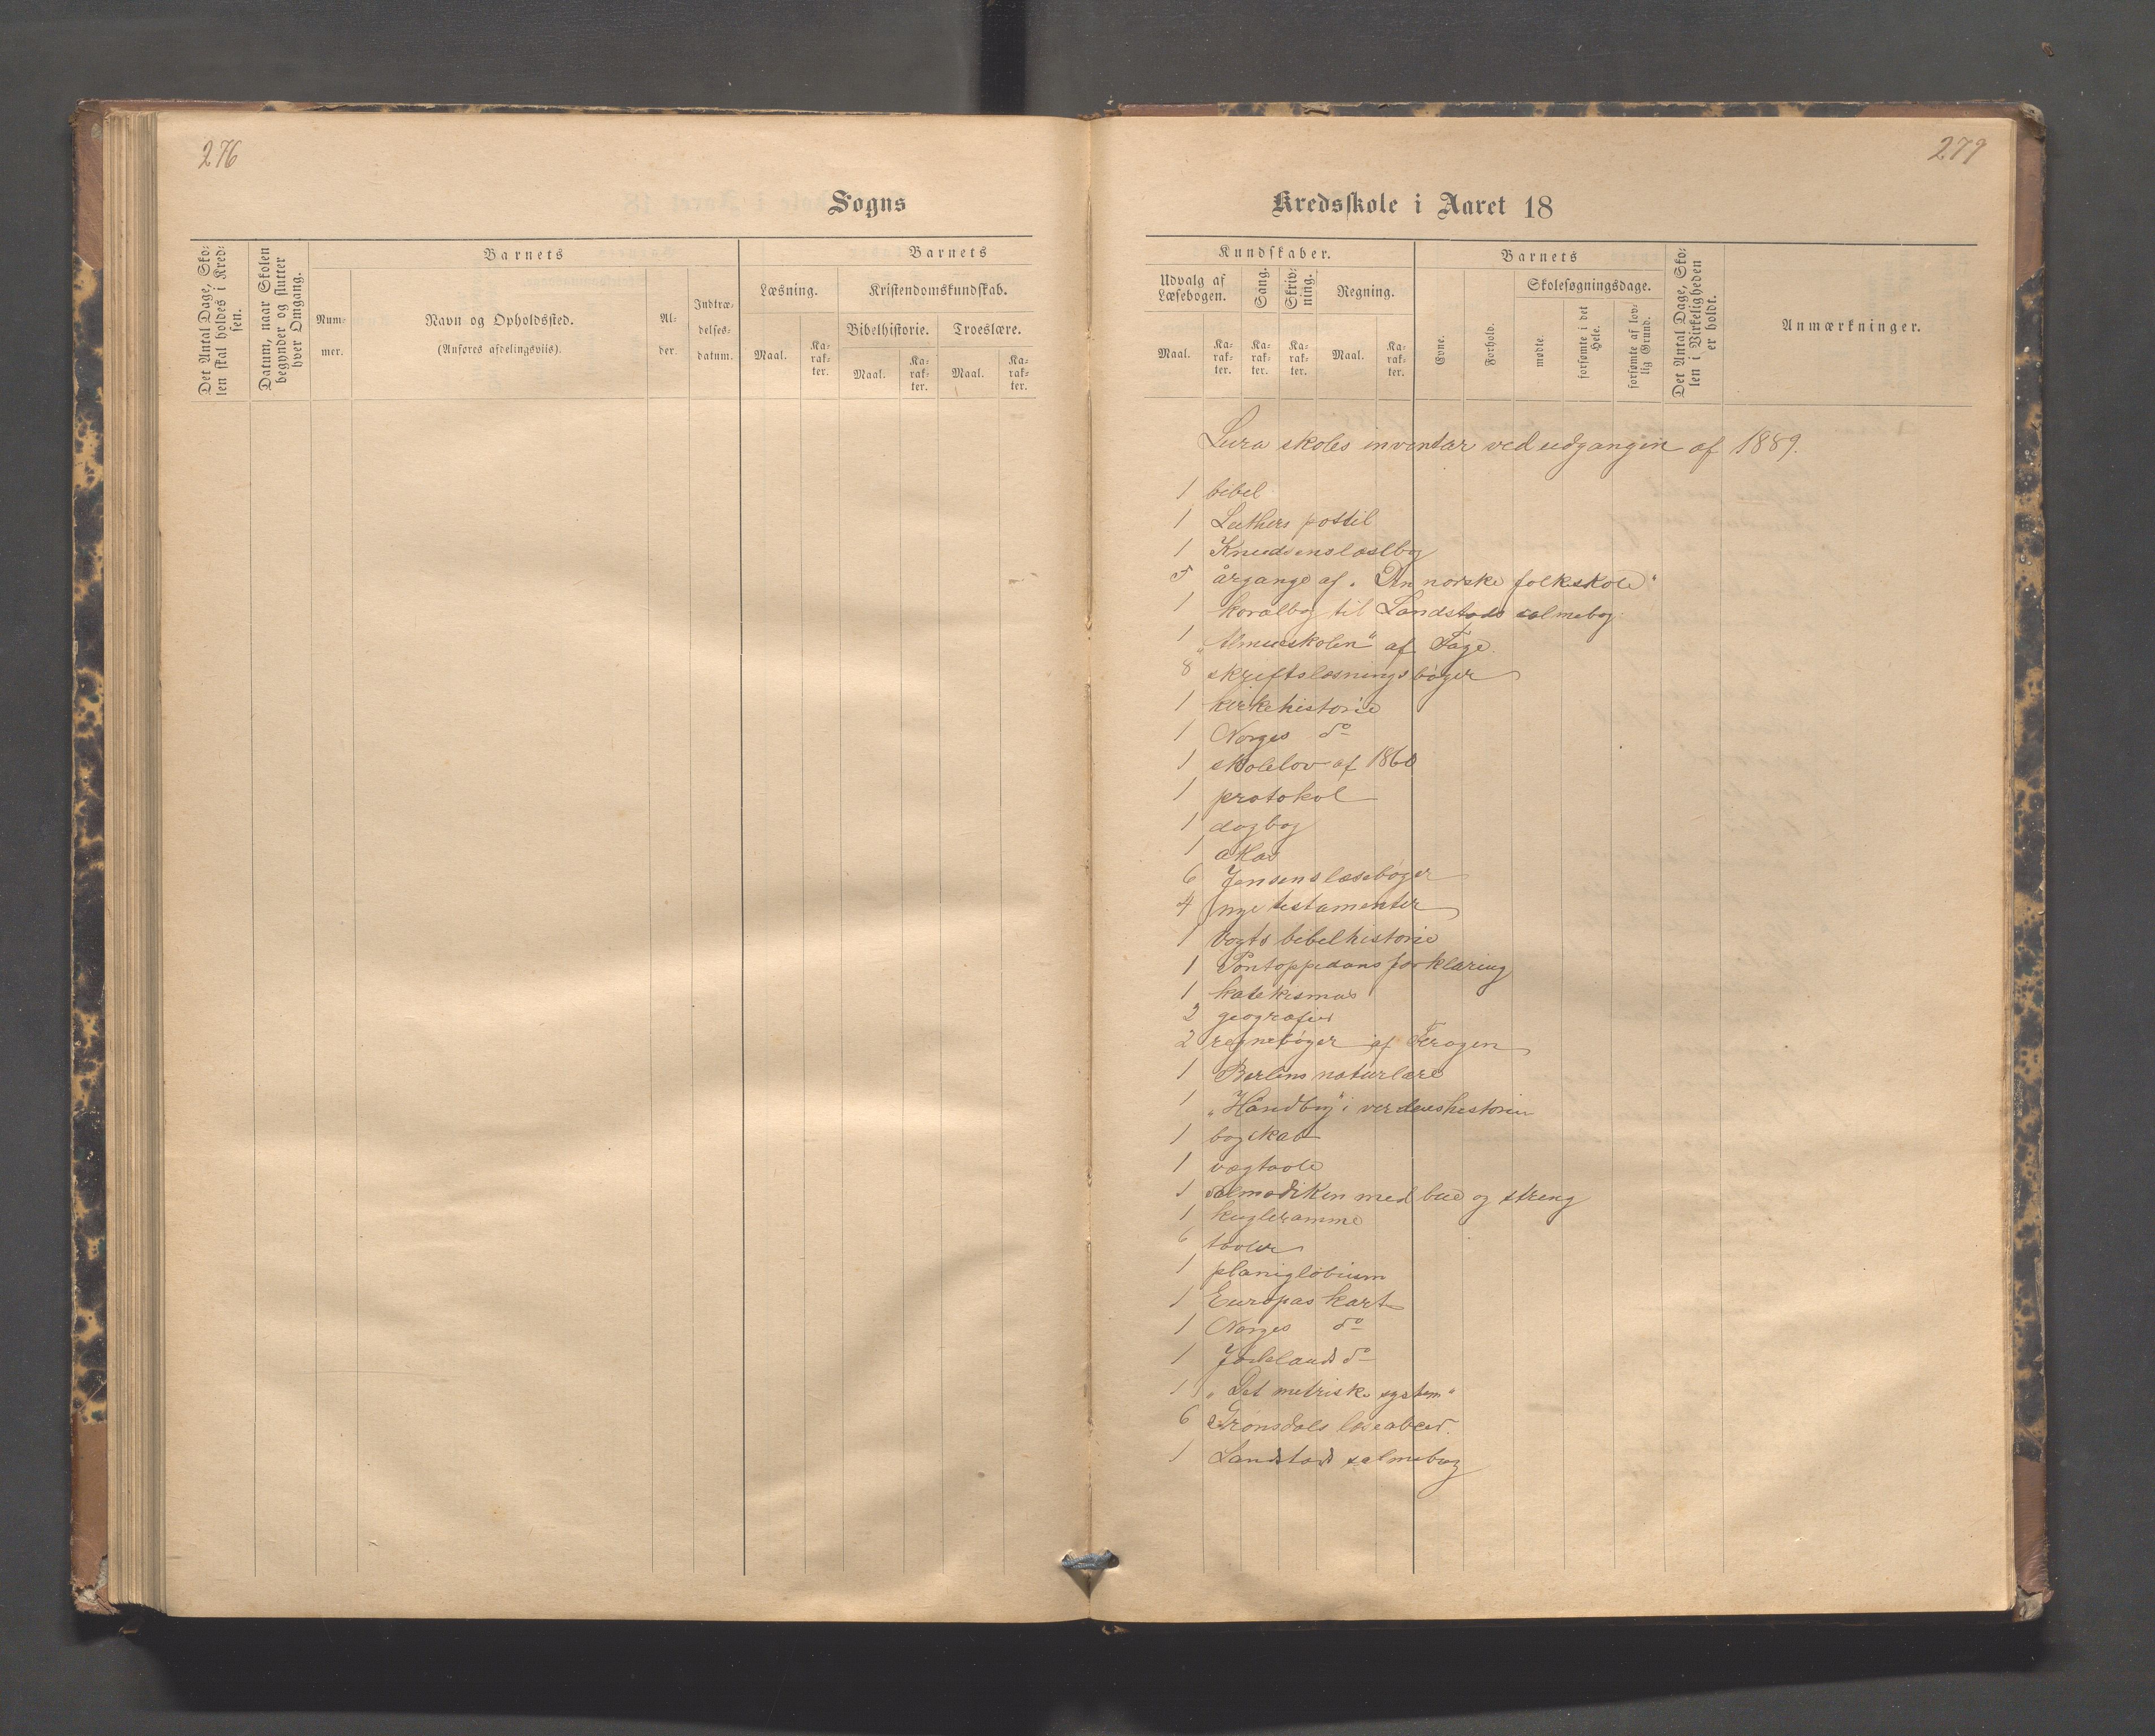 276
Sogns
Det Antal Dage, Sko-
len skal holdes i Kred-
sen.
Datum, naar Skolen
begynder og slutter
hver Omgang.
Barnets
Num-
mer.
Navn og Opholdssted.
(Anføres afdelingsviis).
Al-
der.
Indtræ-
delses-
datum.
Barnets
Læsning.
Kristendomskundskab.
Bibelhistorie.
Troeslære.
Maal.
Ka-
rak-
ter.
Maal.
Ka-
rak-
ter.
Maal.
Ka-
rak-
ter.
279
Kredsskole i Aaret 18
Kundskaber.
Udvalg af
Læsebogen.
Sang.
Skriv-
ning.
Regning.
Maal.
Ka-
rak-
ter.
Ka-
rak-
ter.
Ka-
rak-
ter.
Maal.
Ka-
rak-
ter.
Barnets
Evne.
Forhold.
Skolesøgningsdage.
mødte.
forsømte i det
Hele.
forsømte af lov-
lig Grund.
Det Antal Dage, Sko-
len i Virkeligheden
er holdt.
Anmærkninger.
Lura skoles inventar ved udgangen af 1889.
1 bibel
1 Luthers postil
1 Knudsens læsebog
5 årgange af „Den norske folkskole“
1 koralbog til Landstads salmebog
1 „Almueskolen“ af
8 skriftslæsningsbøger
1 kirkehistorie
1 Norges do
1 skolelov af 1860
1 protokol
1 dagbog
1 atlas
6 Jensens læsebøger
4 nye testamenter
1 Vogts bibelhistorie
1 Pontoppidans forklaring
1 katekismus
2 geografier
2 regnebøger af
1 Berlins naturlære
1 „Håndbog“ i verdenshistorien
1 bogskab
1 vægtavle
1 salmodiken med bue og streng
1 kugleramme
6 tavler
1 planiglobium
1 Europas kart
1 Norges do
1 Jødelands do
1 „Det metriske system“
6 Grønsdals
1 Landstads salmebog